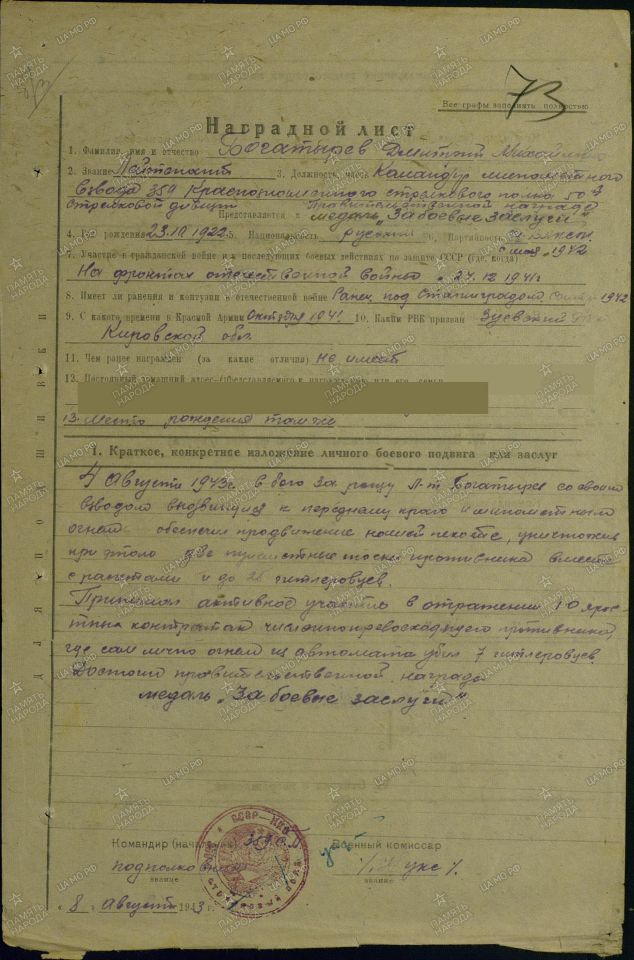 73
Все графы заполнять полностью
Наградной лист
1. Фамилия, имя и отчество Богатырев Дмитрий Михайлович
2. Звание Лейтенант 3. Должность, часть Командир минометного
взвода 359 Краснознаменного стрелкового полка 50й
стрелковой дивизии Правительственной награде
Представляется к медаль „За боевые заслуги"
4. Год рождения 23.10 1922 5. Национальность русский 6. Партийность
с мая 1942
7. Участие в гражданской войне и в последующих боевых действиях по защите СССР (где, когда)
На фронтах отечественной войны с 27.12 1941г
8. Имеет ли ранения и контузии в отечественной войне Ранен под Сталинградом 1942
9. С какого времени в Красной Армии октября 1941 10. Каким РВК призван Зуевский
Кировской обл.
11. Чем ранее награжден (за какие отличия) Не имеет
12. Постоянный домашний адрес
13. Место рождения там же
I. Краткое, конкретное изложение личного боевого подвига или заслуг
4 Августа 1943г. в бою за рощу Л-т Богатырев со своим
взводом выдвинулся к переднему краю и минометным
огнем обеспечил продвижение нашей пехоте, уничтожив
при этом две пулеметные точки противника вместе
с расчетами и до гитлеровцев.
Принимал активное участие в отражении 10 ярос
тных контратак численно превосходящего противника,
где сам лично огнем из автомата убил 7 гитлеровцев.
Достоин правительственной награды
медаль „За боевые заслуги"
ДЛЯ ПОДШИВКИ
Командир (начальник) 359 с.п Военный комиссар
подполковник
звание звание
„ 8 „ Августа 1943 г.
ПАМЯТЬ НАРОДА
ЦАМО.РФ